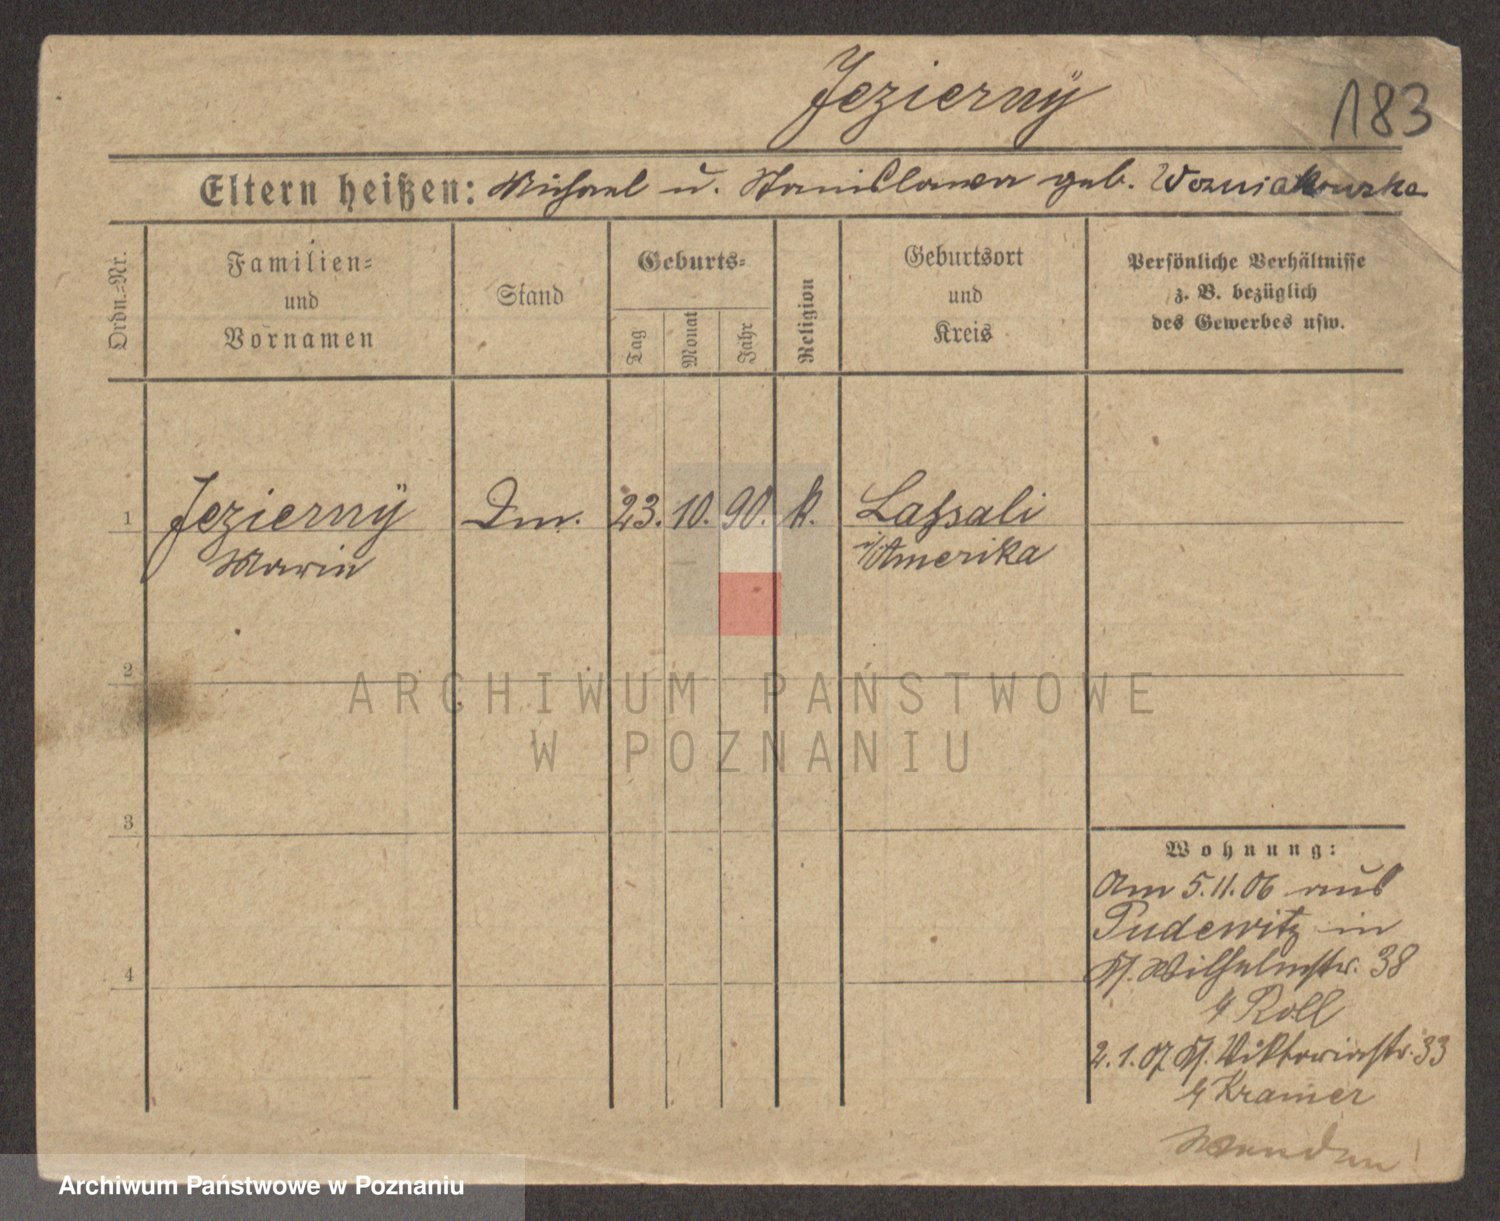 Jezierny
183
Eltern heißen: Michael u. Stanislawa geb. Wozniakowska
Ordn.-Nr.
Familien-
und
Vornamen
Stand
Geburts-
Tag
Monat
Jahr
Religion
Geburtsort
und
Kreis
Persönliche Verhältnisse
z. B. bezüglich
des Gewerbes usw.
1 Jeziernÿ Dm. 23. 10. 90. k. Lassali
Marie i/Amerika
2
ARCHIWUM PAŃSTWOWE
W POZNANIU
3
Wohnung:
Am 5.11.06 aus
Pudewitz in
Wilhelmstr. 38
Roll
4
2.1.07 Viktoriastr. 33
Kramer
Wenden!
Archiwum Państwowe w Poznaniu